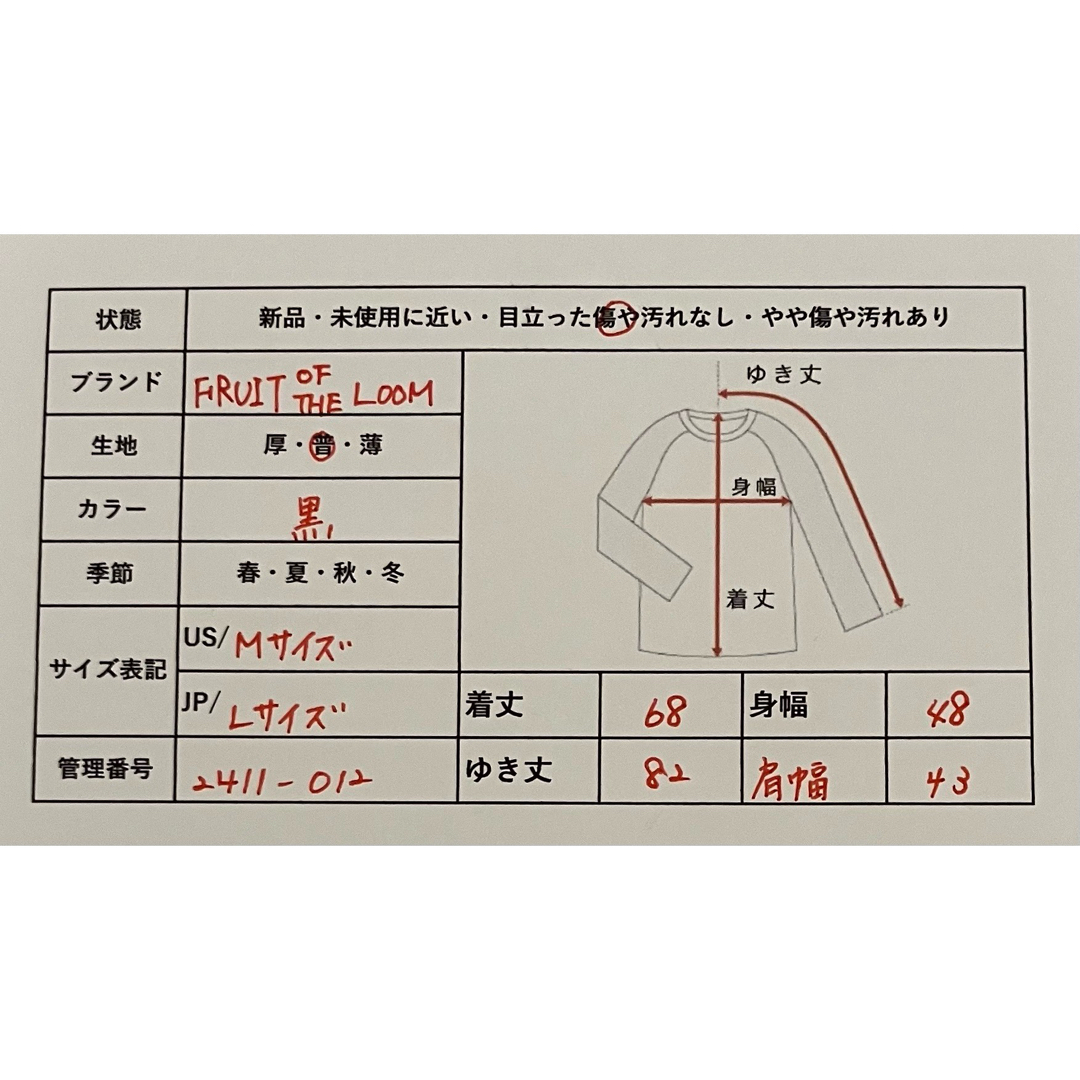 状態 新品・未使用に近い・目立った傷や汚れなし・やや傷や汚れあり
ブランド FRUIT OF THE LOOM
生地 厚・普・薄
カラー 黒
季節 春・夏・秋・冬
サイズ表記 US/ Mサイズ
JP/ Lサイズ
管理番号 2411-012
ゆき丈
身幅
着丈
着丈 68 身幅 48
ゆき丈 82 肩幅 43